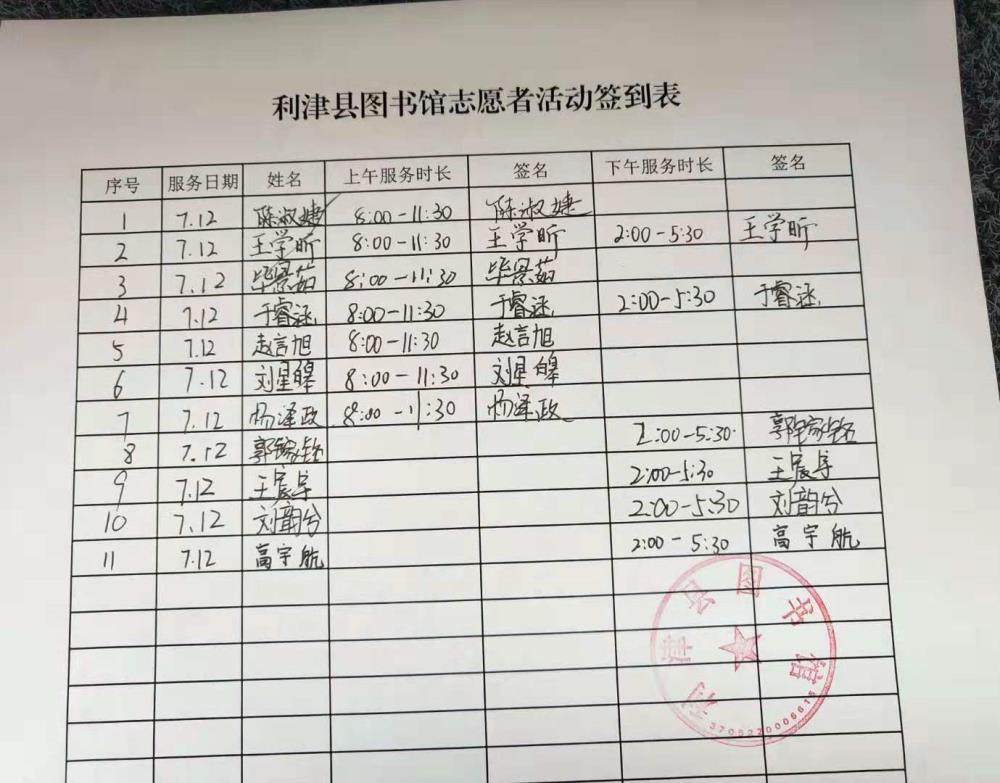 利津县图书馆志愿者活动签到表
序号 服务日期 姓名 上午服务时长 签名 下午服务时长 签名
1 7.12 陈淑婕 8:00-11:30 陈淑婕
2 7.12 王学昕 8:00-11:30 王学昕 2:00-5:30 王学昕
3 7.12 毕景茹 8:00-11:30 毕景茹
4 7.12 于睿涵 8:00-11:30 于睿涵 2:00-5:30 于睿涵
5 7.12 赵言旭 8:00-11:30 赵言旭
6 7.12 刘星皞 8:00-11:30 刘星皞
7 7.12 杨泽政 8:00-11:30 杨泽政
8 7.12 郭 2:00-5:30 郭
9 7.12 王宸 2:00-5:30 王宸
10 7.12 刘韵兮 2:00-5:30 刘韵兮
11 7.12 高宇航 2:00-5:30 高宇航
利津县图书馆
3705220006615